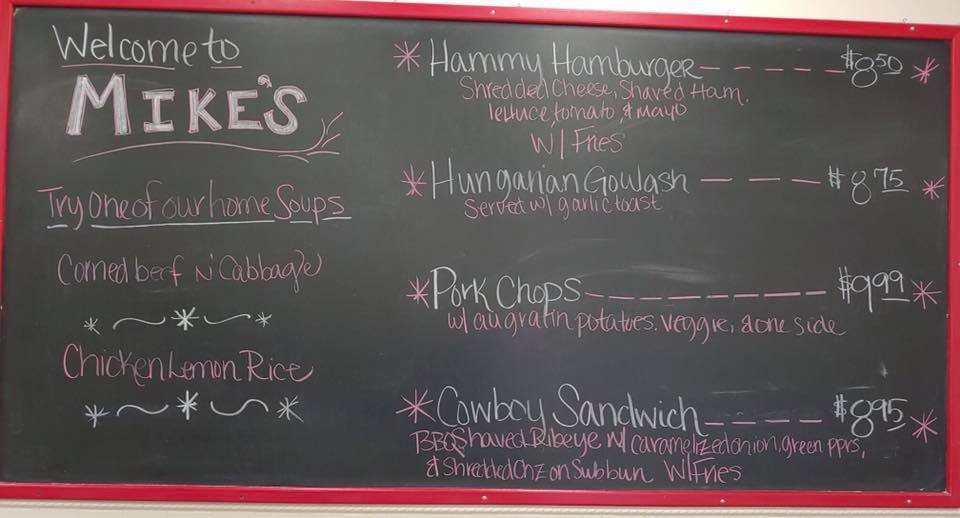 Welcome to
MIKE'S
Try One of our home Soups
Corned beef N' Cabbage
Chicken Lemon Rice
* Hammy Hamburger - - - - - $8.50 *
Shredded Cheese, Shaved Ham,
lettuce, tomato, & mayo
W/ Fries
* Hungarian Goulash - - - $8.75 *
Served w/ garlic toast
* Pork Chops - - - - - - - - $9.99 *
w/ au gratin potatoes. veggie, & one side
* Cowboy Sandwich - - - - $8.95 *
BBQ Shaved Ribeye w/ caramelized onion, green pprs,
& Shredded Chz on Subbun W/ Fries